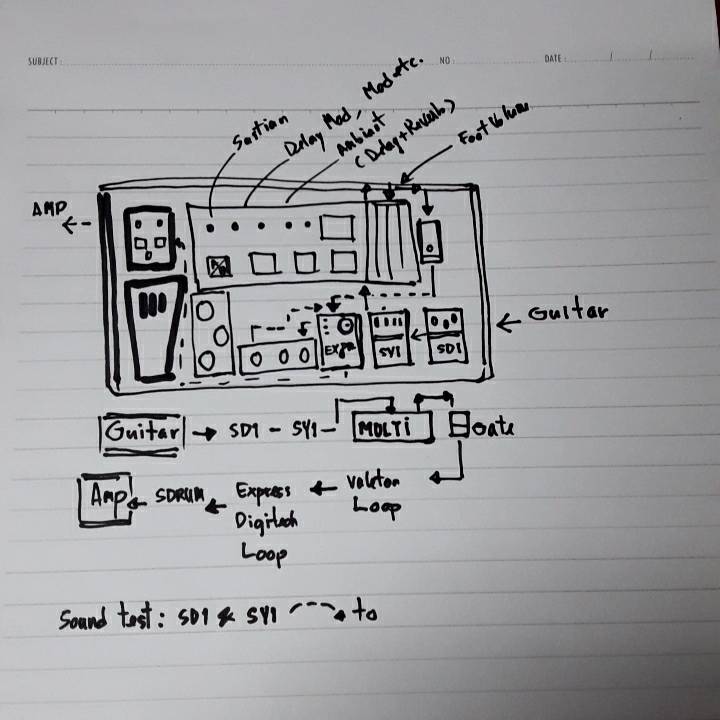 SUBJECT:
NO
DATE: / /
Sustian
Delay Mod, Mod etc.
Ambiant
(Delay+Reverb)
Foot Volume
AMP
Guitar
SY1
SD1
Guitar → SD1 - SY1 - MULTI Gate
Amp ← SDRUM ← Express ← Valeton
Digitech Loop
Loop
Sound test: SD1 & SY1 → to